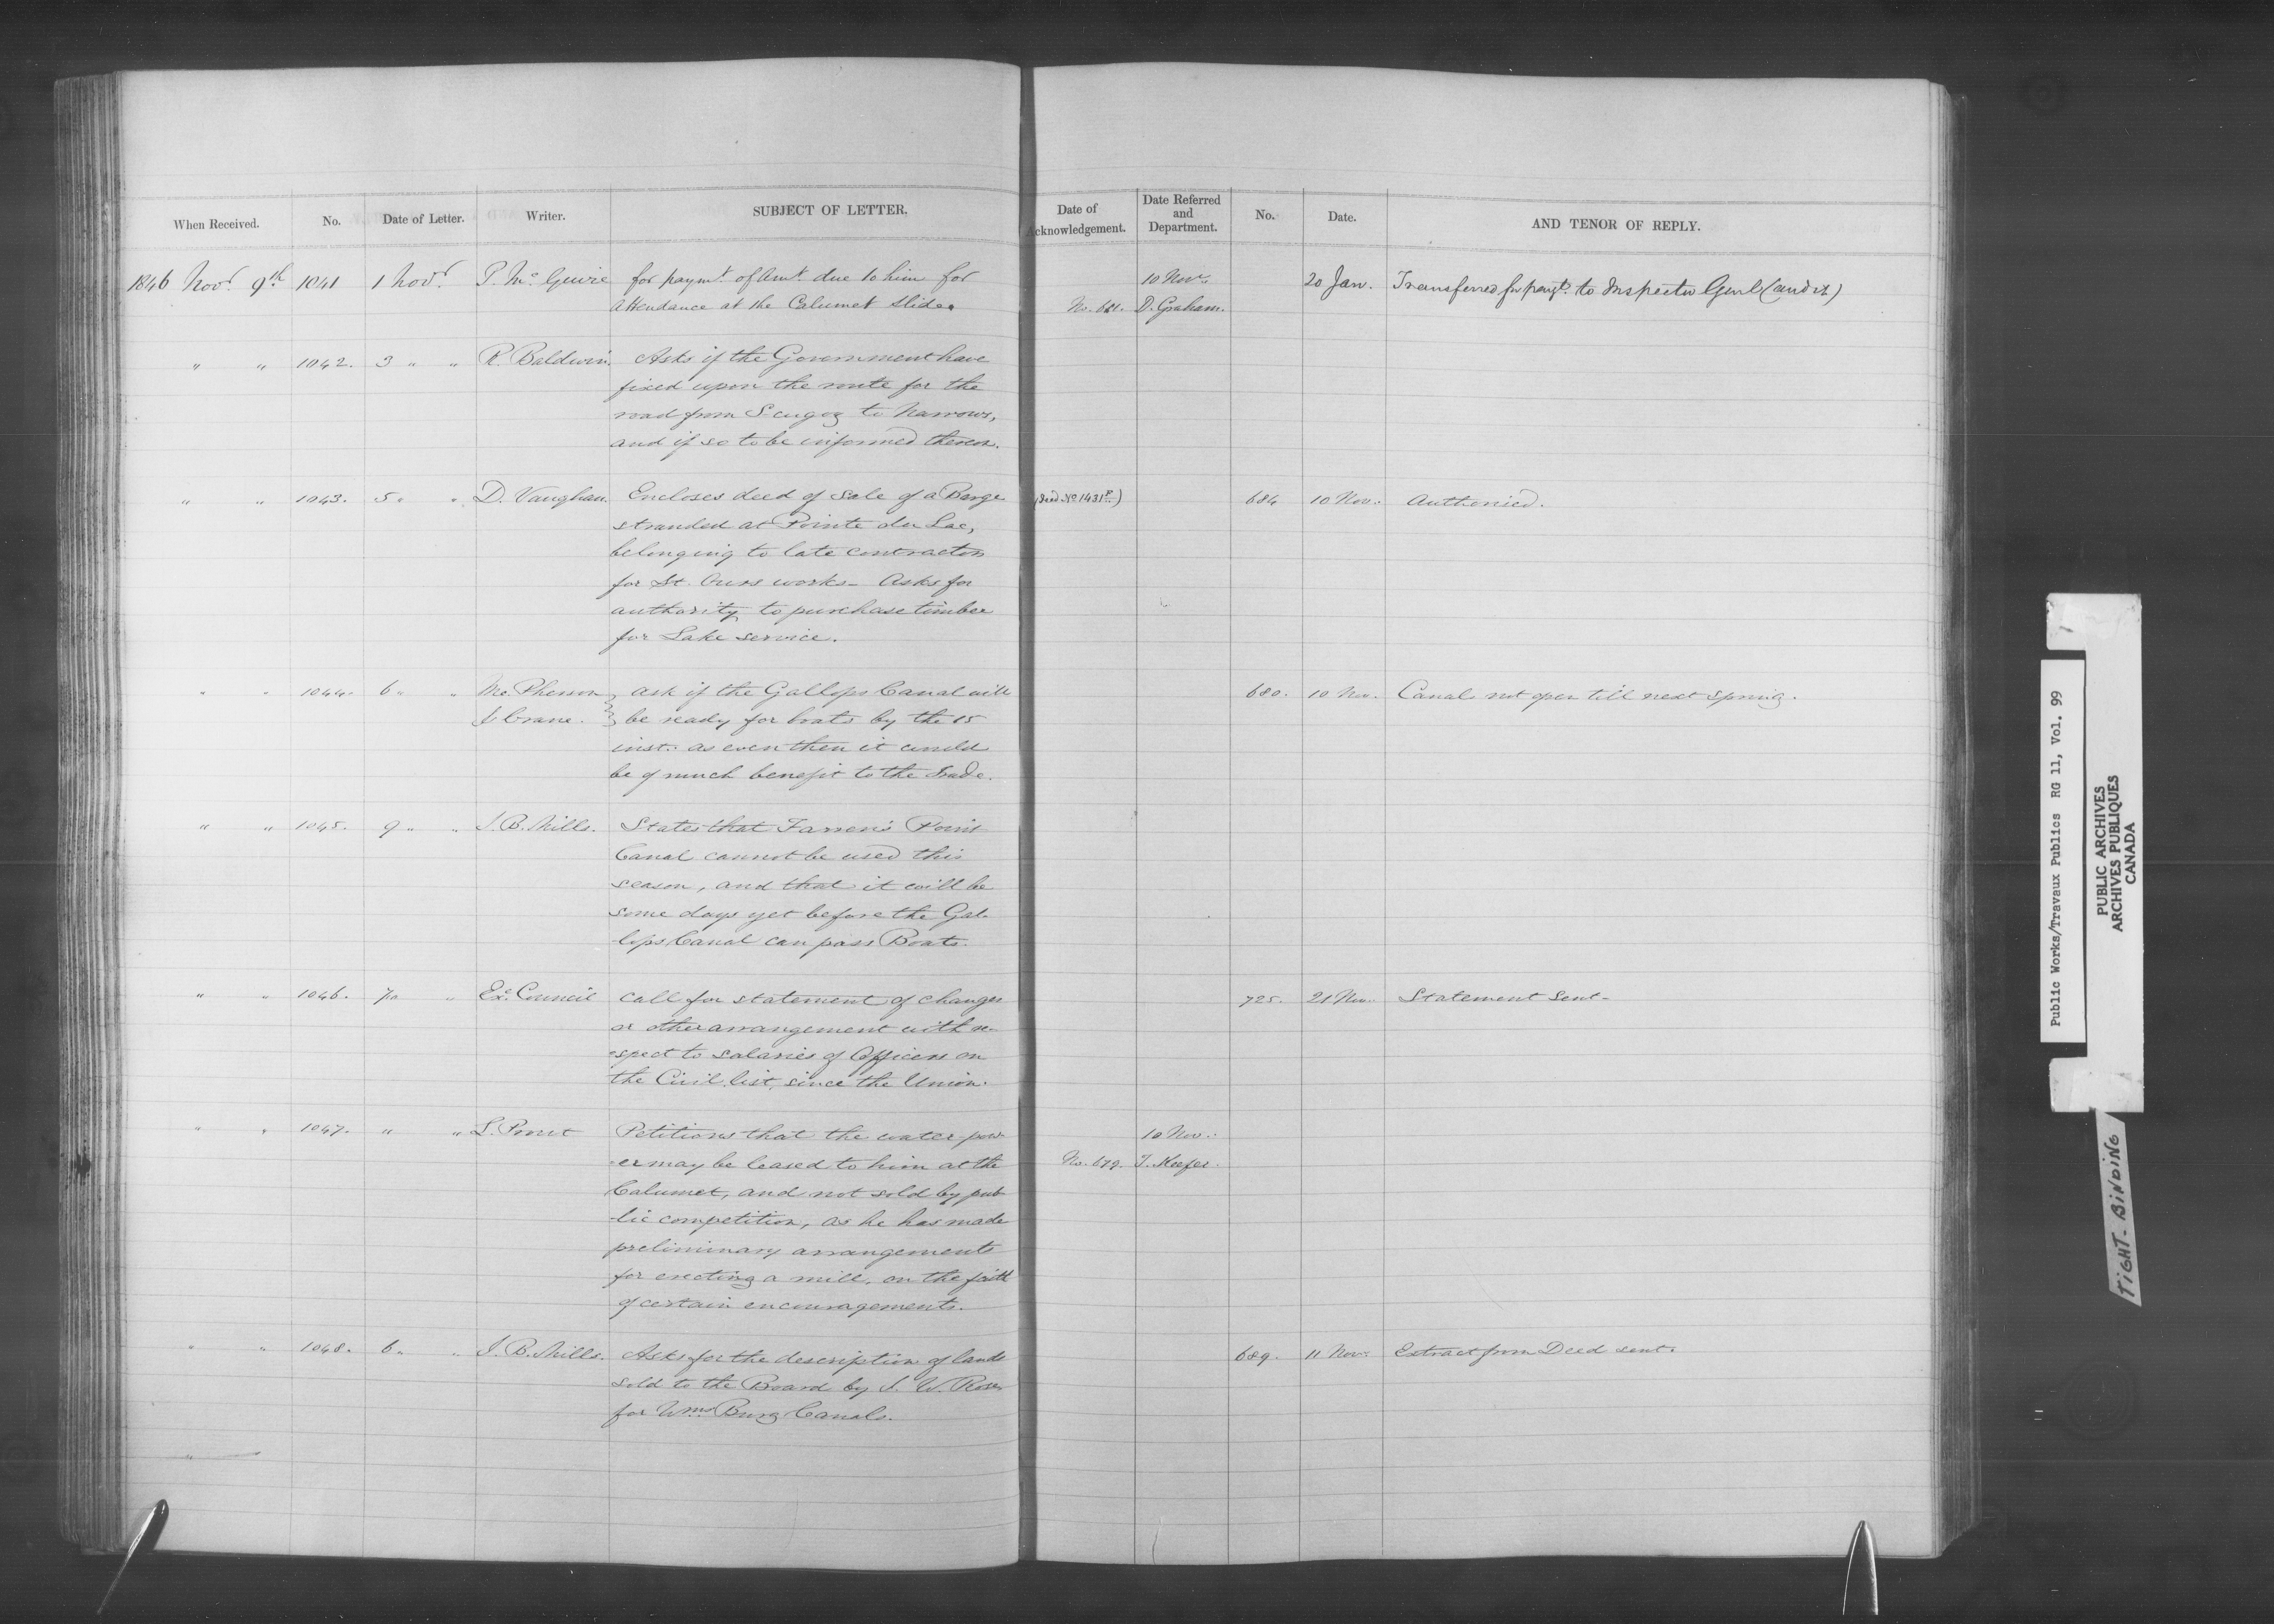 When Received. No. Date of Letter. Writer. SUBJECT OF LETTER. Date of Acknowledgement. Date Referred and Department. No. Date. AND TENOR OF REPLY.
1846 Novr. 9th 1041 1 Novr. P. Mc. Guire for paymt. of Amt. due to him for 10 Nov. 20 Jan. Transferred for paygt. to Inspector Genl (audit)
Attendance at the Calumet Slide. No. 681. D. Graham.
" " 1042. 3 " " R. Baldwin. Asks if the Government have
fixed upon the route for the
road from Scugog to Narrows,
and if so to be informed thereon.
" " 1043. 5 " " D. Vaughan. Encloses deed of Sale of a Barge (Deed No. 1431 P.) 684 10 Nov. Authorised.
stranded at Pointe du Lac,
belonging to late contractors
for St. Ours works - Asks for
authority to purchase timber
for Lake service.
" " 1044. 6 " " Mc. Pherson Ask if the Gallops Canal will 680. 10 Nov. Canal not open till next spring.
& Crane. be ready for boats by the 15
inst. as even then it could
be of much benefit to the Trade.
" " 1045. 9 " " J. B. Mills. States that Farren's Point
Canal cannot be used this
season, and that it will be
some days yet before the Gal-
lops Canal can pass Boats.
" " 1046. " Exe. Council Call for statement of changes 725. 21 Nov. Statement sent.
or other arrangement with re-
spect to salaries of Officers on
the Civil list, since the Union.
" " 1047. " " L. Prout Petitions that the water pow- 10 Nov.
-er may be leased to him at the No. 679. T. Keefer.
Calumet, and not sold by pub-
-lic competition, as he has made
preliminary arrangements
for erecting a mill, on the faith
of certain encouragements.
" " 1048. 6 " " J. B. Mills. Asks for the description of lands 689. 11 Nov. Extract from Deed sent.
sold to the Board by J. W. Rose
for Wms Burg Canals.
"
Public Works/Travaux Publics RG 11, Vol. 99
PUBLIC ARCHIVES
ARCHIVES PUBLIQUES
CANADA
TIGHT-BINDING